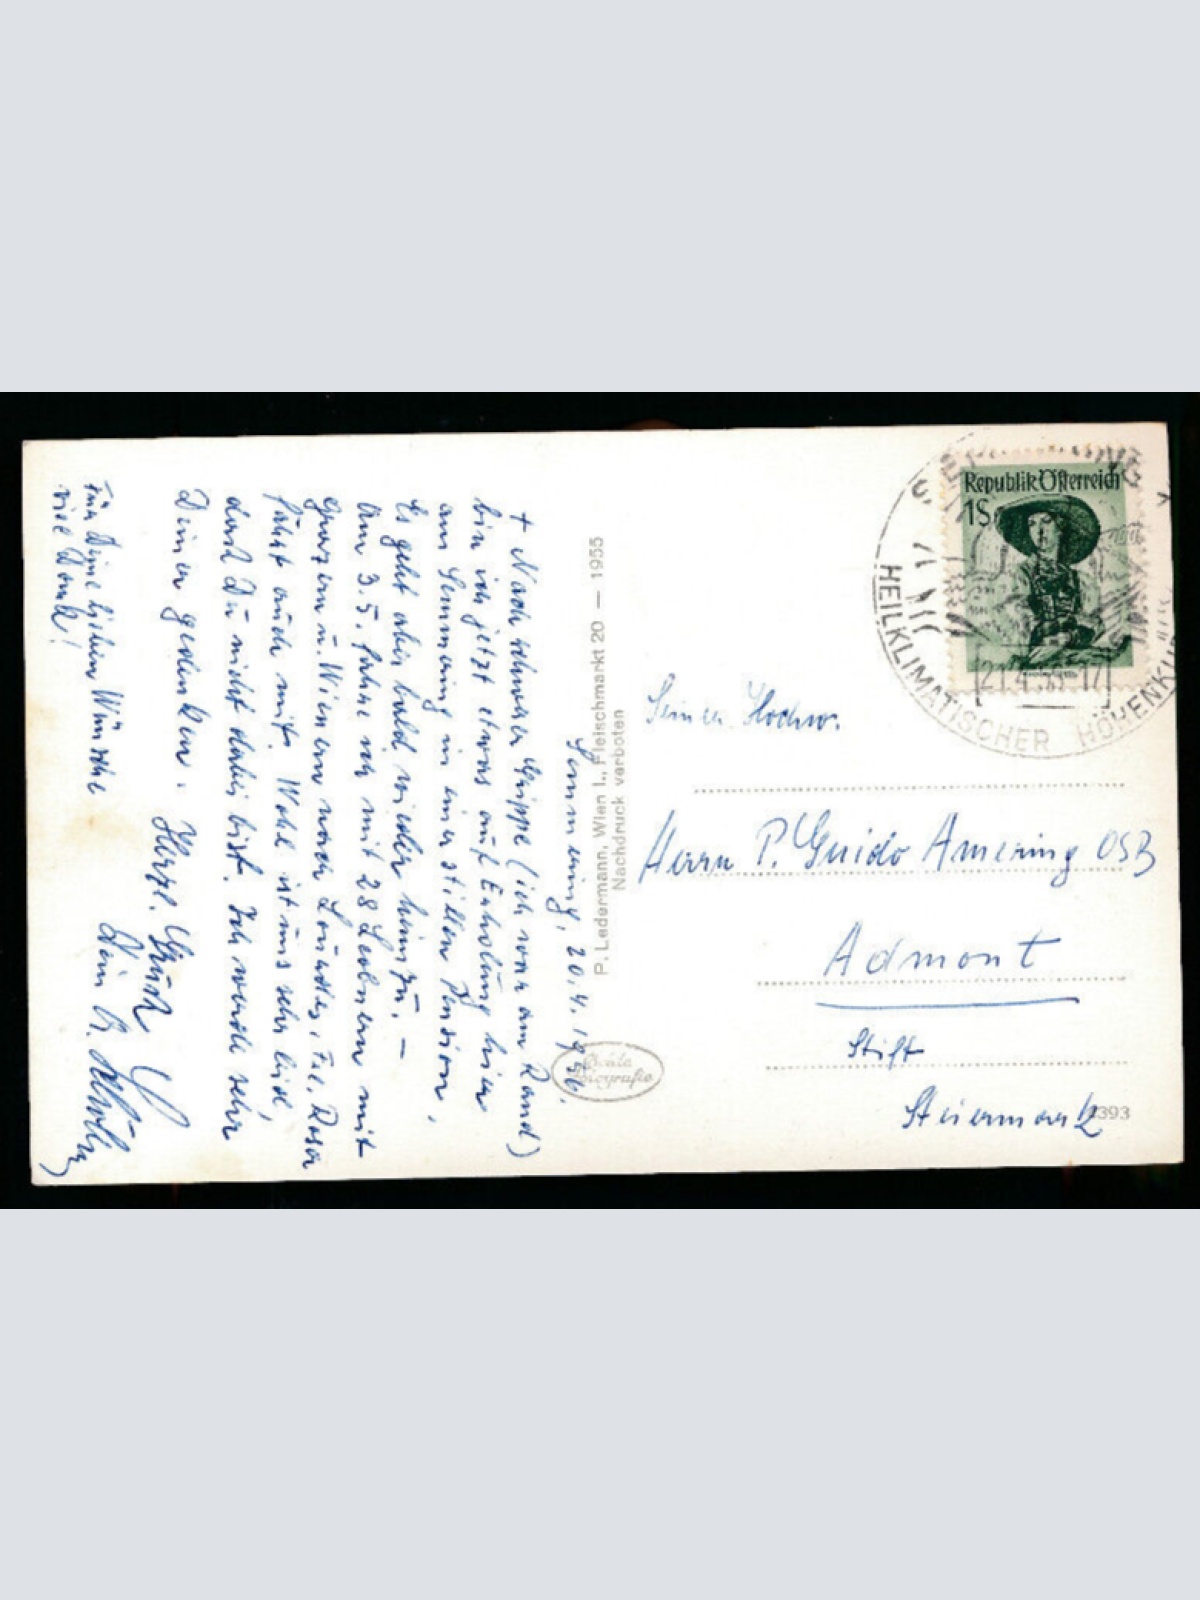 Semmering, 20.4.1956.
+ Nach schwerer Grippe (ich war am Rand)
bin ich jetzt etwas auf Erholung hier
am Semmering in einer stillen Pension.
Es geht aber bald wieder heim zu. —
Am 3.5. fahre ich mit 28 Leobnern mit
Grazern u. Wienern nach Lourdes, Frl. Rosa
fährt auch mit. Wohl ist uns sehr leid,
dass Du nicht dabei bist. Ich werde sehr
Deiner gedenken. Herzl. Gruß
Dein
Für Deine lieben Wünsche
viel Dank!
P. Ledermann, Wien I., Fleischmarkt 20 — 1955
Nachdruck verboten
Republik Österreich
1S
SEMMERING
HEILKLIMATISCHER HÖHENKU
Seiner Hochw.
Herrn P. Guido Amering OSB
Admont
Stift
Steiermark
393